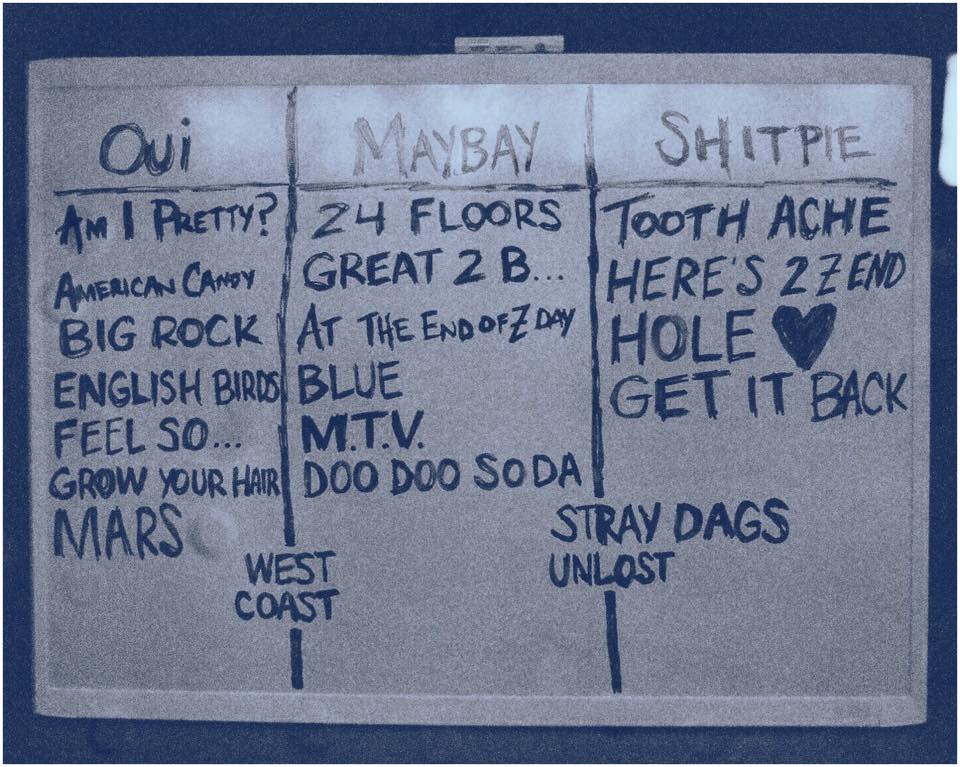 Oui
Am I Pretty?
American Candy
BIG ROCK
ENGLISH BIRDS
FEEL SO...
GROW YOUR HAIR
MARS
WEST
COAST
MAYBAY
24 FLOORS
GREAT 2 B...
AT THE END OF Z DAY
BLUE
M.T.V.
DOO DOO SODA
SHITPIE
TOOTH ACHE
HERE'S 2 Z END
HOLE ♥
GET IT BACK
STRAY DAGS
UNLOST